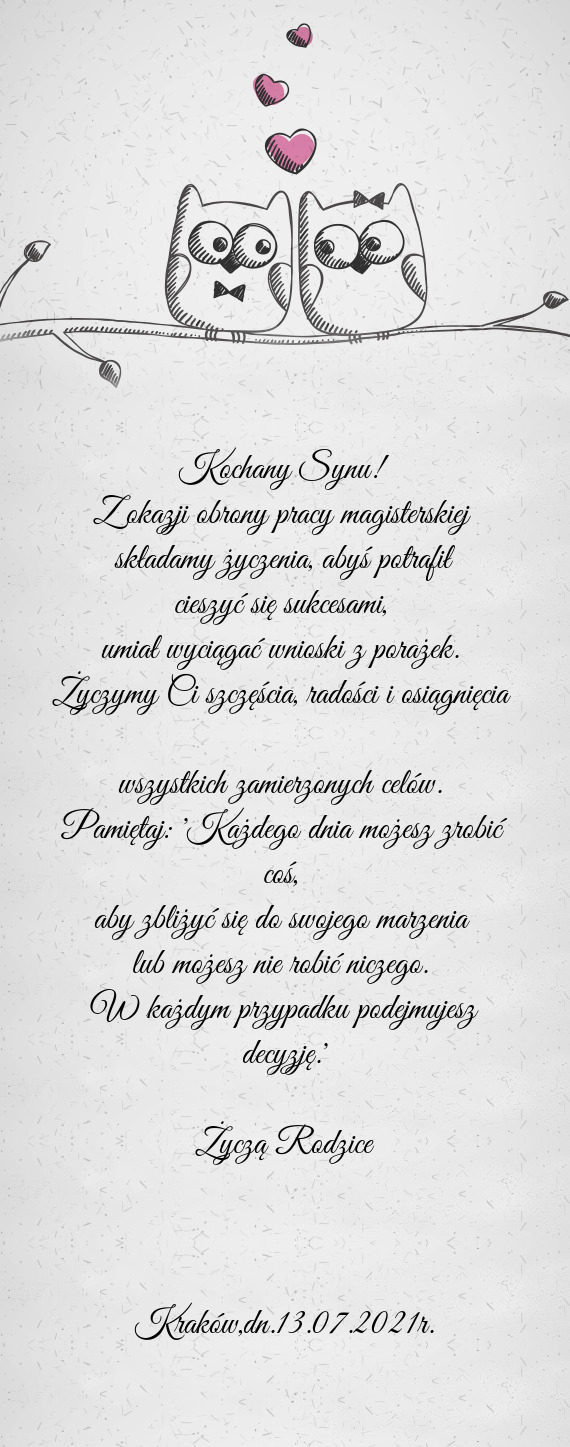 Kochany Synu!
Z okazji obrony pracy magisterskiej
składamy życzenia, abyś potrafił
cieszyć się sukcesami,
umiał wyciągać wnioski z porażek.
Życzymy Ci szczęścia, radości i osiągnięcia
wszystkich zamierzonych celów.
Pamiętaj: 'Każdego dnia możesz zrobić
coś,
aby zbliżyć się do swojego marzenia
lub możesz nie robić niczego.
W każdym przypadku podejmujesz
decyzję.'
Życzą Rodzice
Kraków,dn.13.07.2021r.